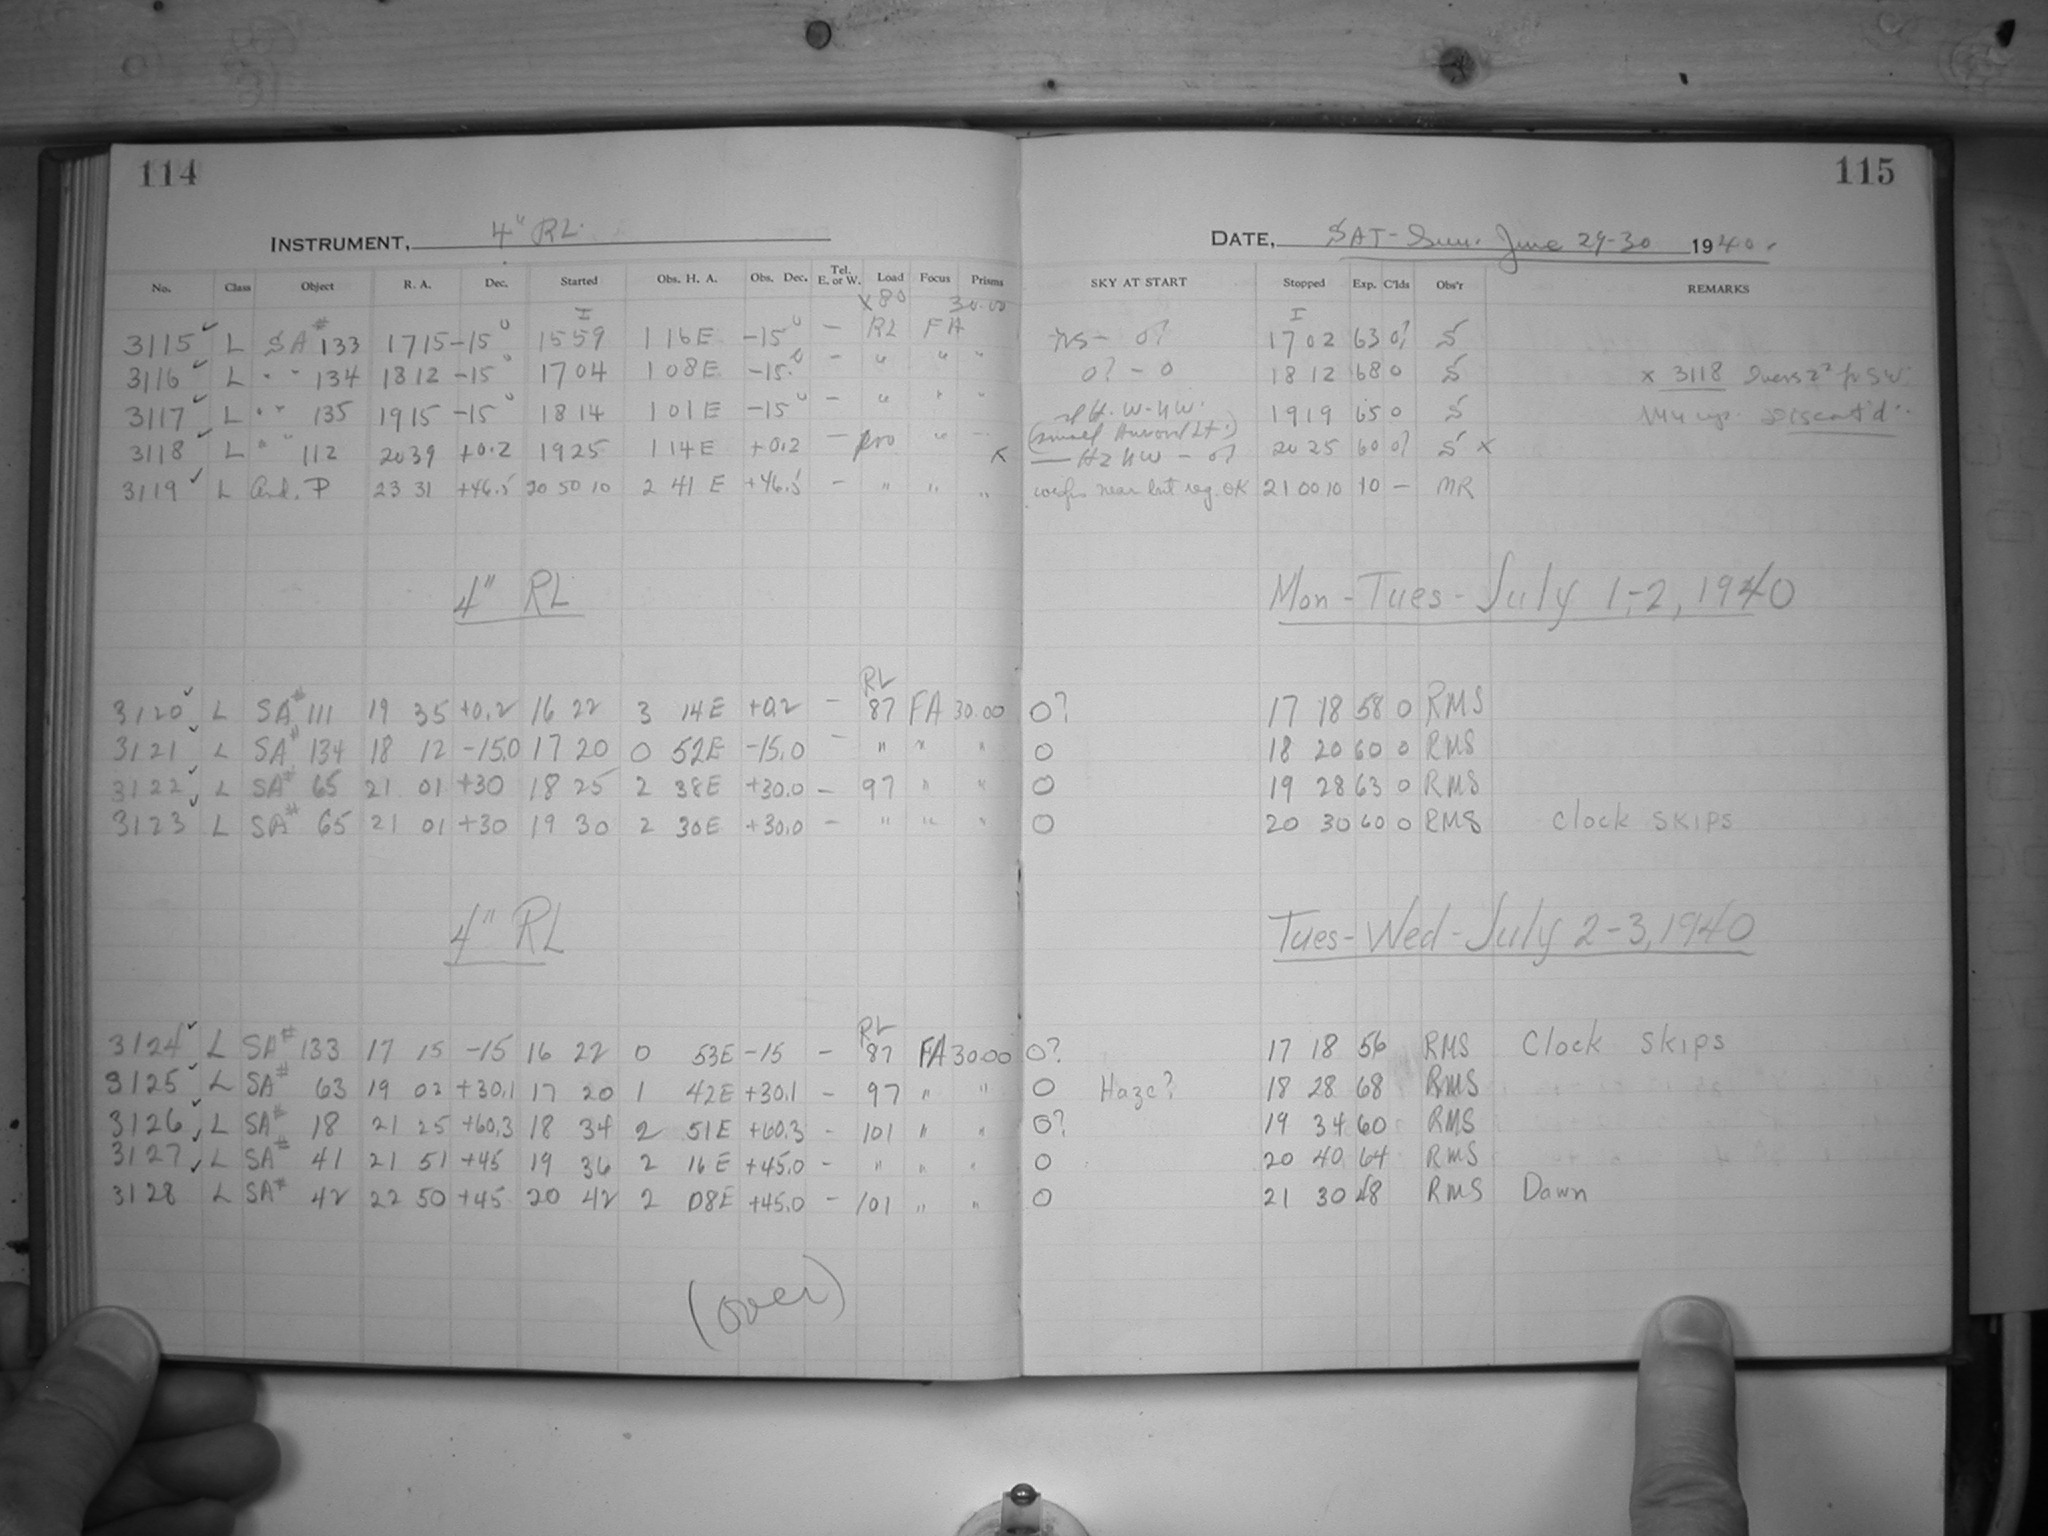 114
115
INSTRUMENT, 4" RL.
DATE, SAT-Sun. June 29-30 1940.
No. Class Object R. A. Dec. Started Obs. H. A. Obs. Dec. Tel. E. or W. Load Focus Prisms SKY AT START Stopped Exp. C'lds Obs'r REMARKS
x80 30.00
3115 ✓ L SA # 133 17 15 -15° 15 59 1 16E -15° - RL FA 0? 17 02 63 0? S
3116 ✓ L " " 134 18 12 -15° 17 04 1 08E -15.° - " " " 0? - 0 18 12 68 0 S x 3118
3117 ✓ L " " 135 19 15 -15° 18 14 1 01E -15° - " " " 19 19 65 0 S discont'd.
3118 ✓ L " " 112 20 39 +0.2 19 25 1 14E +0.2 - pro " - x (small Auroral Lt.) — Hz NW - 0? 20 25 60 0? S x
3119 ✓ L And. P 23 31 +46.5 20 50 10 2 41 E +46.5 - " " " near but reg. OK 21 00 10 10 - MR
4" RL
Mon-Tues-July 1-2, 1940
RL
3120 ✓ L SA # 111 19 35 +0.2 16 22 3 14E +0.2 - 87 FA 30.00 0? 17 18 58 0 RMS
3121 ✓ L SA # 134 18 12 -15.0 17 20 0 52E -15.0 - " " " 0 18 20 60 0 RMS
3122 ✓ L SA # 65 21 01 +30 18 25 2 38E +30.0 - 97 " " 0 19 28 63 0 RMS
3123 ✓ L SA # 65 21 01 +30 19 30 2 30E +30.0 - " " " 0 20 30 60 0 RMS Clock SKIPS
4" RL
Tues-Wed-July 2-3, 1940
RL
3124 ✓ L SA # 133 17 15 -15 16 22 0 53E -15 - 87 FA 30.00 0? 17 18 56 RMS Clock Skips
3125 ✓ L SA # 63 19 02 +30.1 17 20 1 42E +30.1 - 97 " " 0 Haze? 18 28 68 RMS
3126 ✓ L SA # 18 21 25 +60.3 18 34 2 51E +60.3 - 101 " " 0? 19 34 60 RMS
3127 ✓ L SA # 41 21 51 +45 19 36 2 16E +45.0 - " " " 0 20 40 64 RMS
3128 ✓ L SA # 42 22 50 +45 20 42 2 08E +45.0 - 101 " " 0 21 30 48 RMS Dawn
(over)